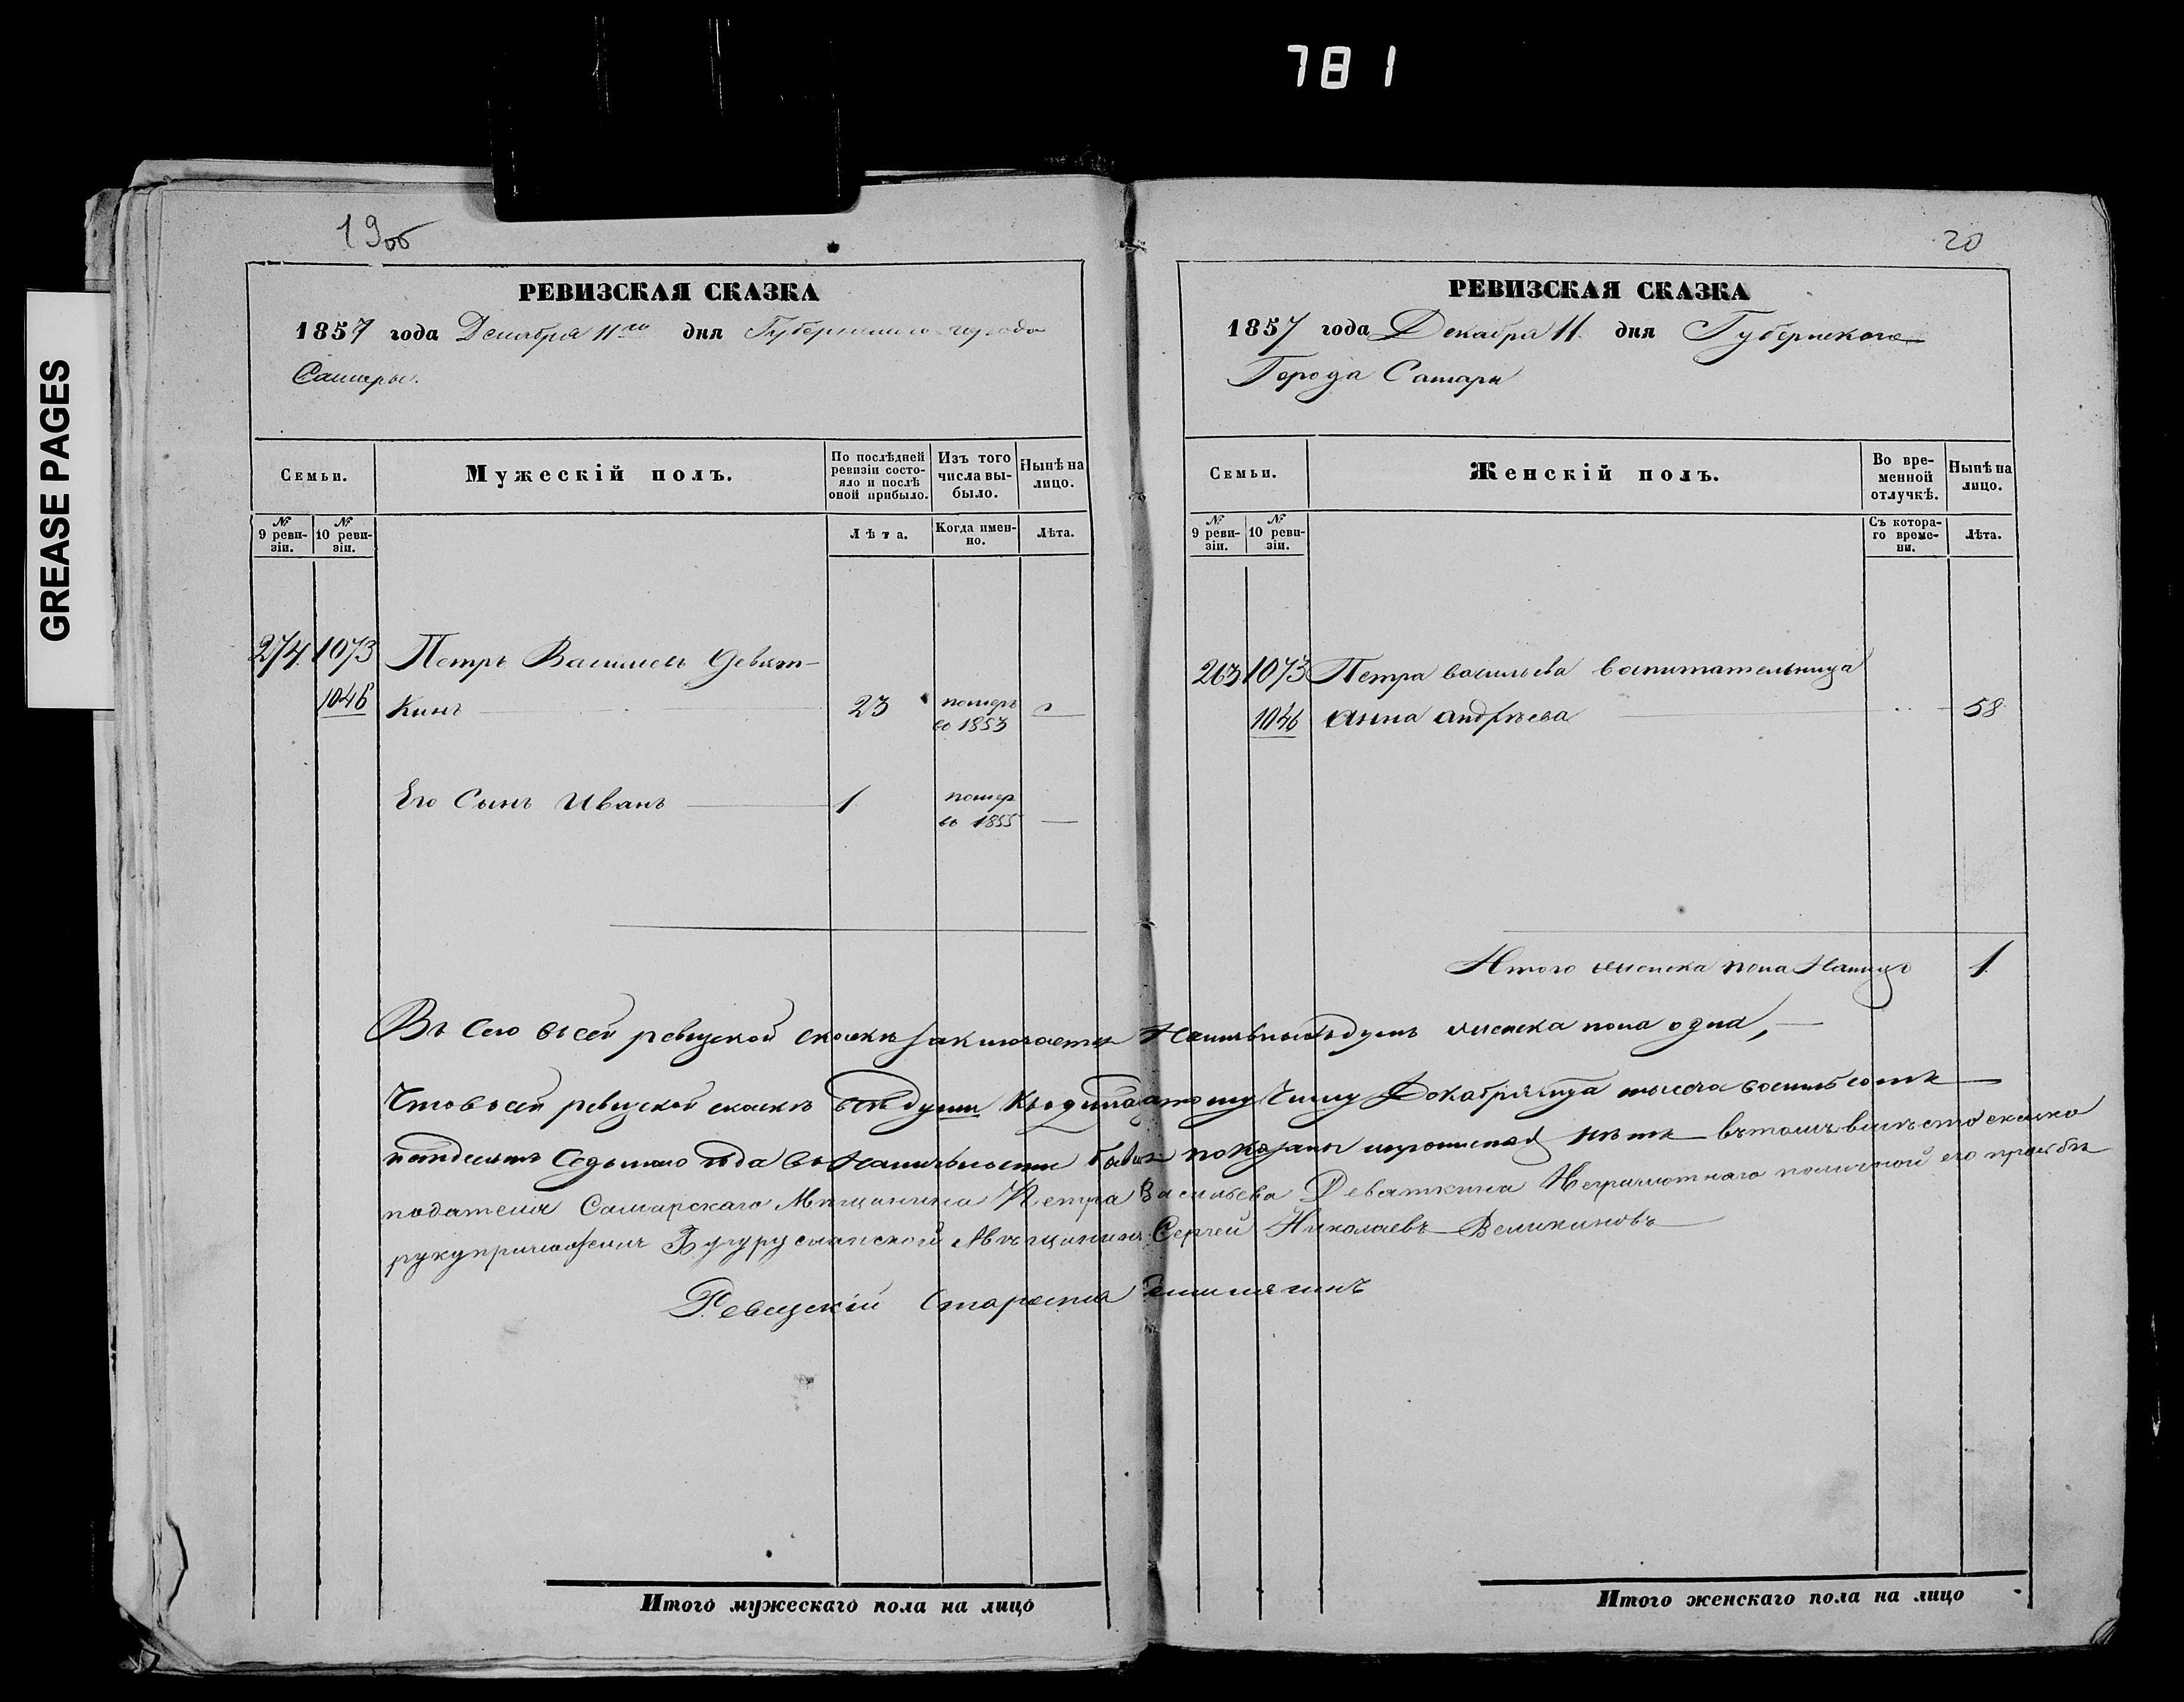 781
GREASE PAGES
19об
РЕВИЗСКАЯ СКАЗКА
1857 года Декабря 11го дня Губернскаго города
Самары.
Семьи.
Мужескій полъ.
По послѣдней ревизіи состояло и послѣ оной прибыло.
Изъ того числа выбыло.
Нынѣ на лицо.
№ 9 ревизіи.
№ 10 ревизіи.
Лѣта.
Когда именно.
Лѣта.
274 1073 Петръ Васильевъ Девят-
1046 кинъ 23 померъ въ 1853 —
Его Сынъ Иванъ 1 помер въ 1855 —
20
РЕВИЗСКАЯ СКАЗКА
1857 года Декабря 11 дня Губернскаго
Города Самары
Семьи.
Женскій полъ.
Во временной отлучкѣ.
Нынѣ на лицо.
№ 9 ревизіи.
№ 10 ревизіи.
Съ котораго времени.
Лѣта.
263 1073 Петра васильева воспитательница
1046 Анна андрѣева 58
Итого женска пола Налицо 1
Въ сей ревизской сказкѣ заключается Наличныхъ душъ женска пола одна, —
Что въ сей ревизской сказкѣ всѣ души Къ одинадцатому Числу Декабря тысеча восемьсотъ
пятдесятъ Седьмого года въ Наличьности бывшія показаны ипрописной нѣтъ въ томъ вместо сказко
подателя Самарскаго Мѣщанина Петра Васильева Девяткина Неграмотнаго по личной его прозьбѣ
рукуприложилъ Бугурусланской Мѣщанинъ Сергей Николаевъ Великановъ
Ревизскій Староста
Итого мужескаго пола на лицо
Итого женскаго пола на лицо